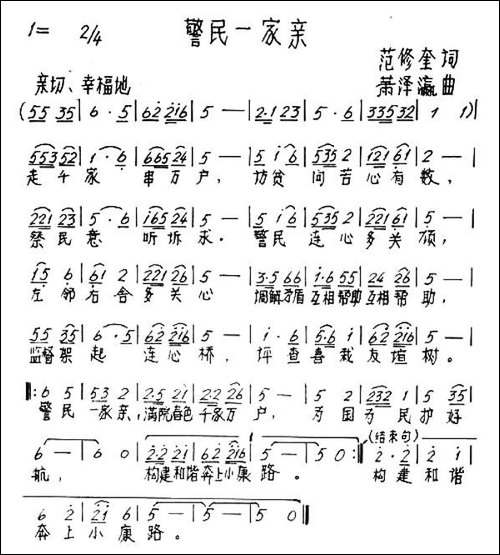 1= 2/4 警民一家亲
范修奎 词
亲切、幸福地 萧泽瀛 曲
(55 35 | 6·5 | 62 216 | 5 — | 2·1 23 | 5·6 | 335 32 | 1 1 )|
553 52 | 1·6 | 665 24 | 5 — | 5 i 6 | 535 2 | 121 61 | 2 — |
走千家 串万户, 访贫问苦心有数,
221 23 | 5·6 | i65 24 | 5 — | 5 i 6 | 535 2 | 221 61 | 5 — |
察民意 听诉求。 警民连心多关顾,
i5 6 | 61 2 | 221 26 | 5 — | 3·5 66 | i·6 55 | 24 26 | 5 — |
左邻右舍多关心 调解矛盾互相帮助互相帮助,
55 35 | 6·5 | 62 216 | 5 — | i·6 | 5·6 i | 62 216 | 5 — |
监督架起 连心桥, 坪查喜栽友谊树。
‖: 6 5 | 53 2 | 2·5 21 | 22 26 | 5 — | 5 2 | 232 1 | 5 35 |
警民一家亲,满院春色千家万户, 为国为民护好
6 — | 6 0 | 22 21 | 62 216 | 5 — | 5 0 :‖ (结束句) 2·2 | 2 i |
航, 构建和谐奔上小康路。 构建和谐
6 2 | 21 6 | 5 — | 5 — | 5 0 ‖
奔上小康路。